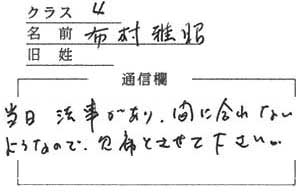 クラス 4
名前 布村雅昭
旧姓
通信欄
当日 法事があり、間に合わない
ようなので、欠席とさせて下さい。